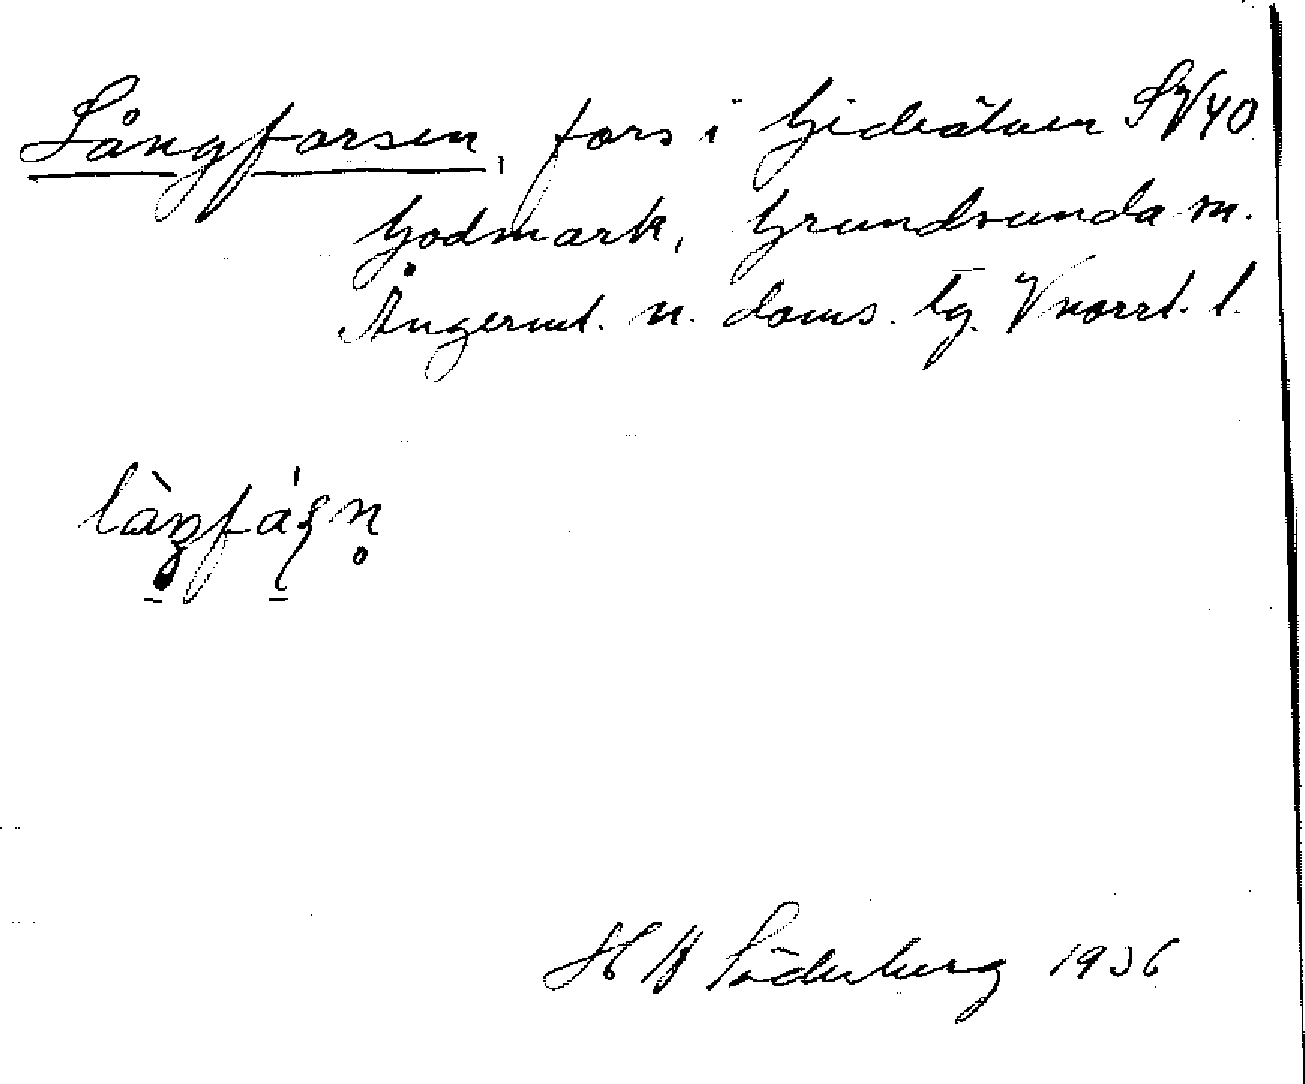 Långforsen, fors i Gideälven SV40
Godmark, Grundsunda sn.
Ångerml. n. doms. tg. Vnorrl. l.
H W Söderberg 1936